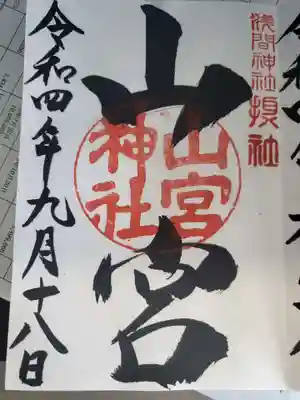 浅間神社摂社
山宮
山宮
神社
令和四年九月十八日